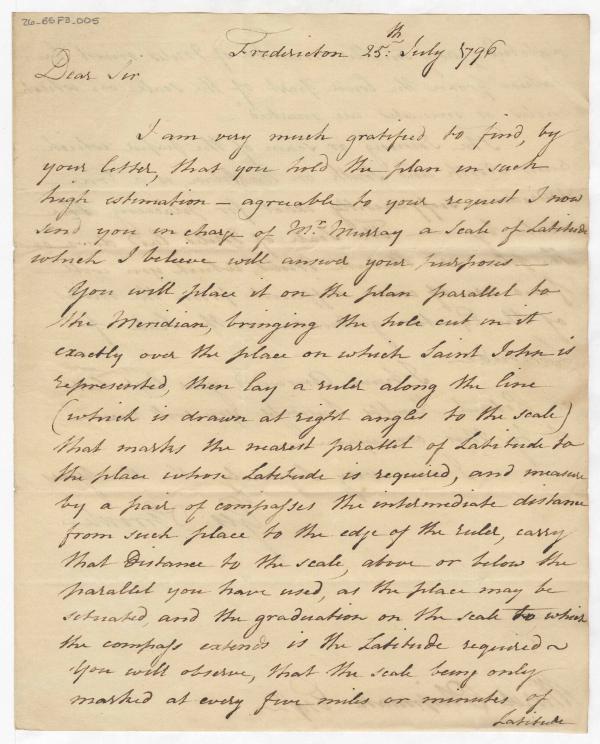 26-BSF3_005
Fredericton 25.th July 1796
Dear Sir
I am very much gratified to find, by
your letter, that you hold the plan in such
high estimation — agreable to your request I now
send you in charge of Mr. Murray a Scale of Latitude
which I believe will answer your purposes —
You will place it on the plan parallel to
the Meridian, bringing the hole cut in it
exactly over the place on which Saint John is
represented, then lay a ruler along the line
(which is drawn at right angles to the scale)
that marks the nearest parallel of Latitude to
the place whose Latitude is required, and measure
by a pair of compasses the intermediate distance
from such place to the edge of the ruler, carry
that Distance to the scale, above or below the
parallel you have used, as the place may be
situated, and the graduation on the scale to which
the compass extends is the Latitude required ~
You will observe, that the scale being only
marked at every five miles or minutes of
Latitude